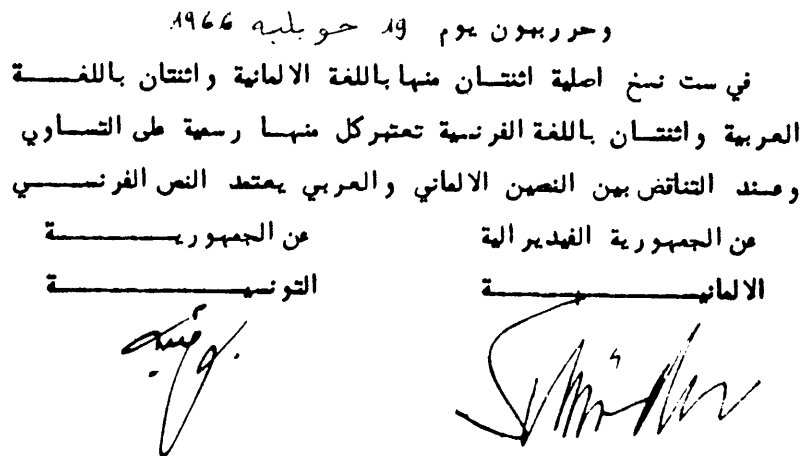 وحرر ببون يوم 19 جويلية 1966
في ست نسخ اصلية اثنتان منها باللغة الالمانية واثنتان باللغة
العربية واثنتان باللغة الفرنسية تعتبر كل منها رسمية على التساوي
وعند التناقض بين النصين الالماني والعربي يعتمد النص الفرنسي
عن الجمهورية الفيديرالية عن الجمهورية
الالمانية التونسية